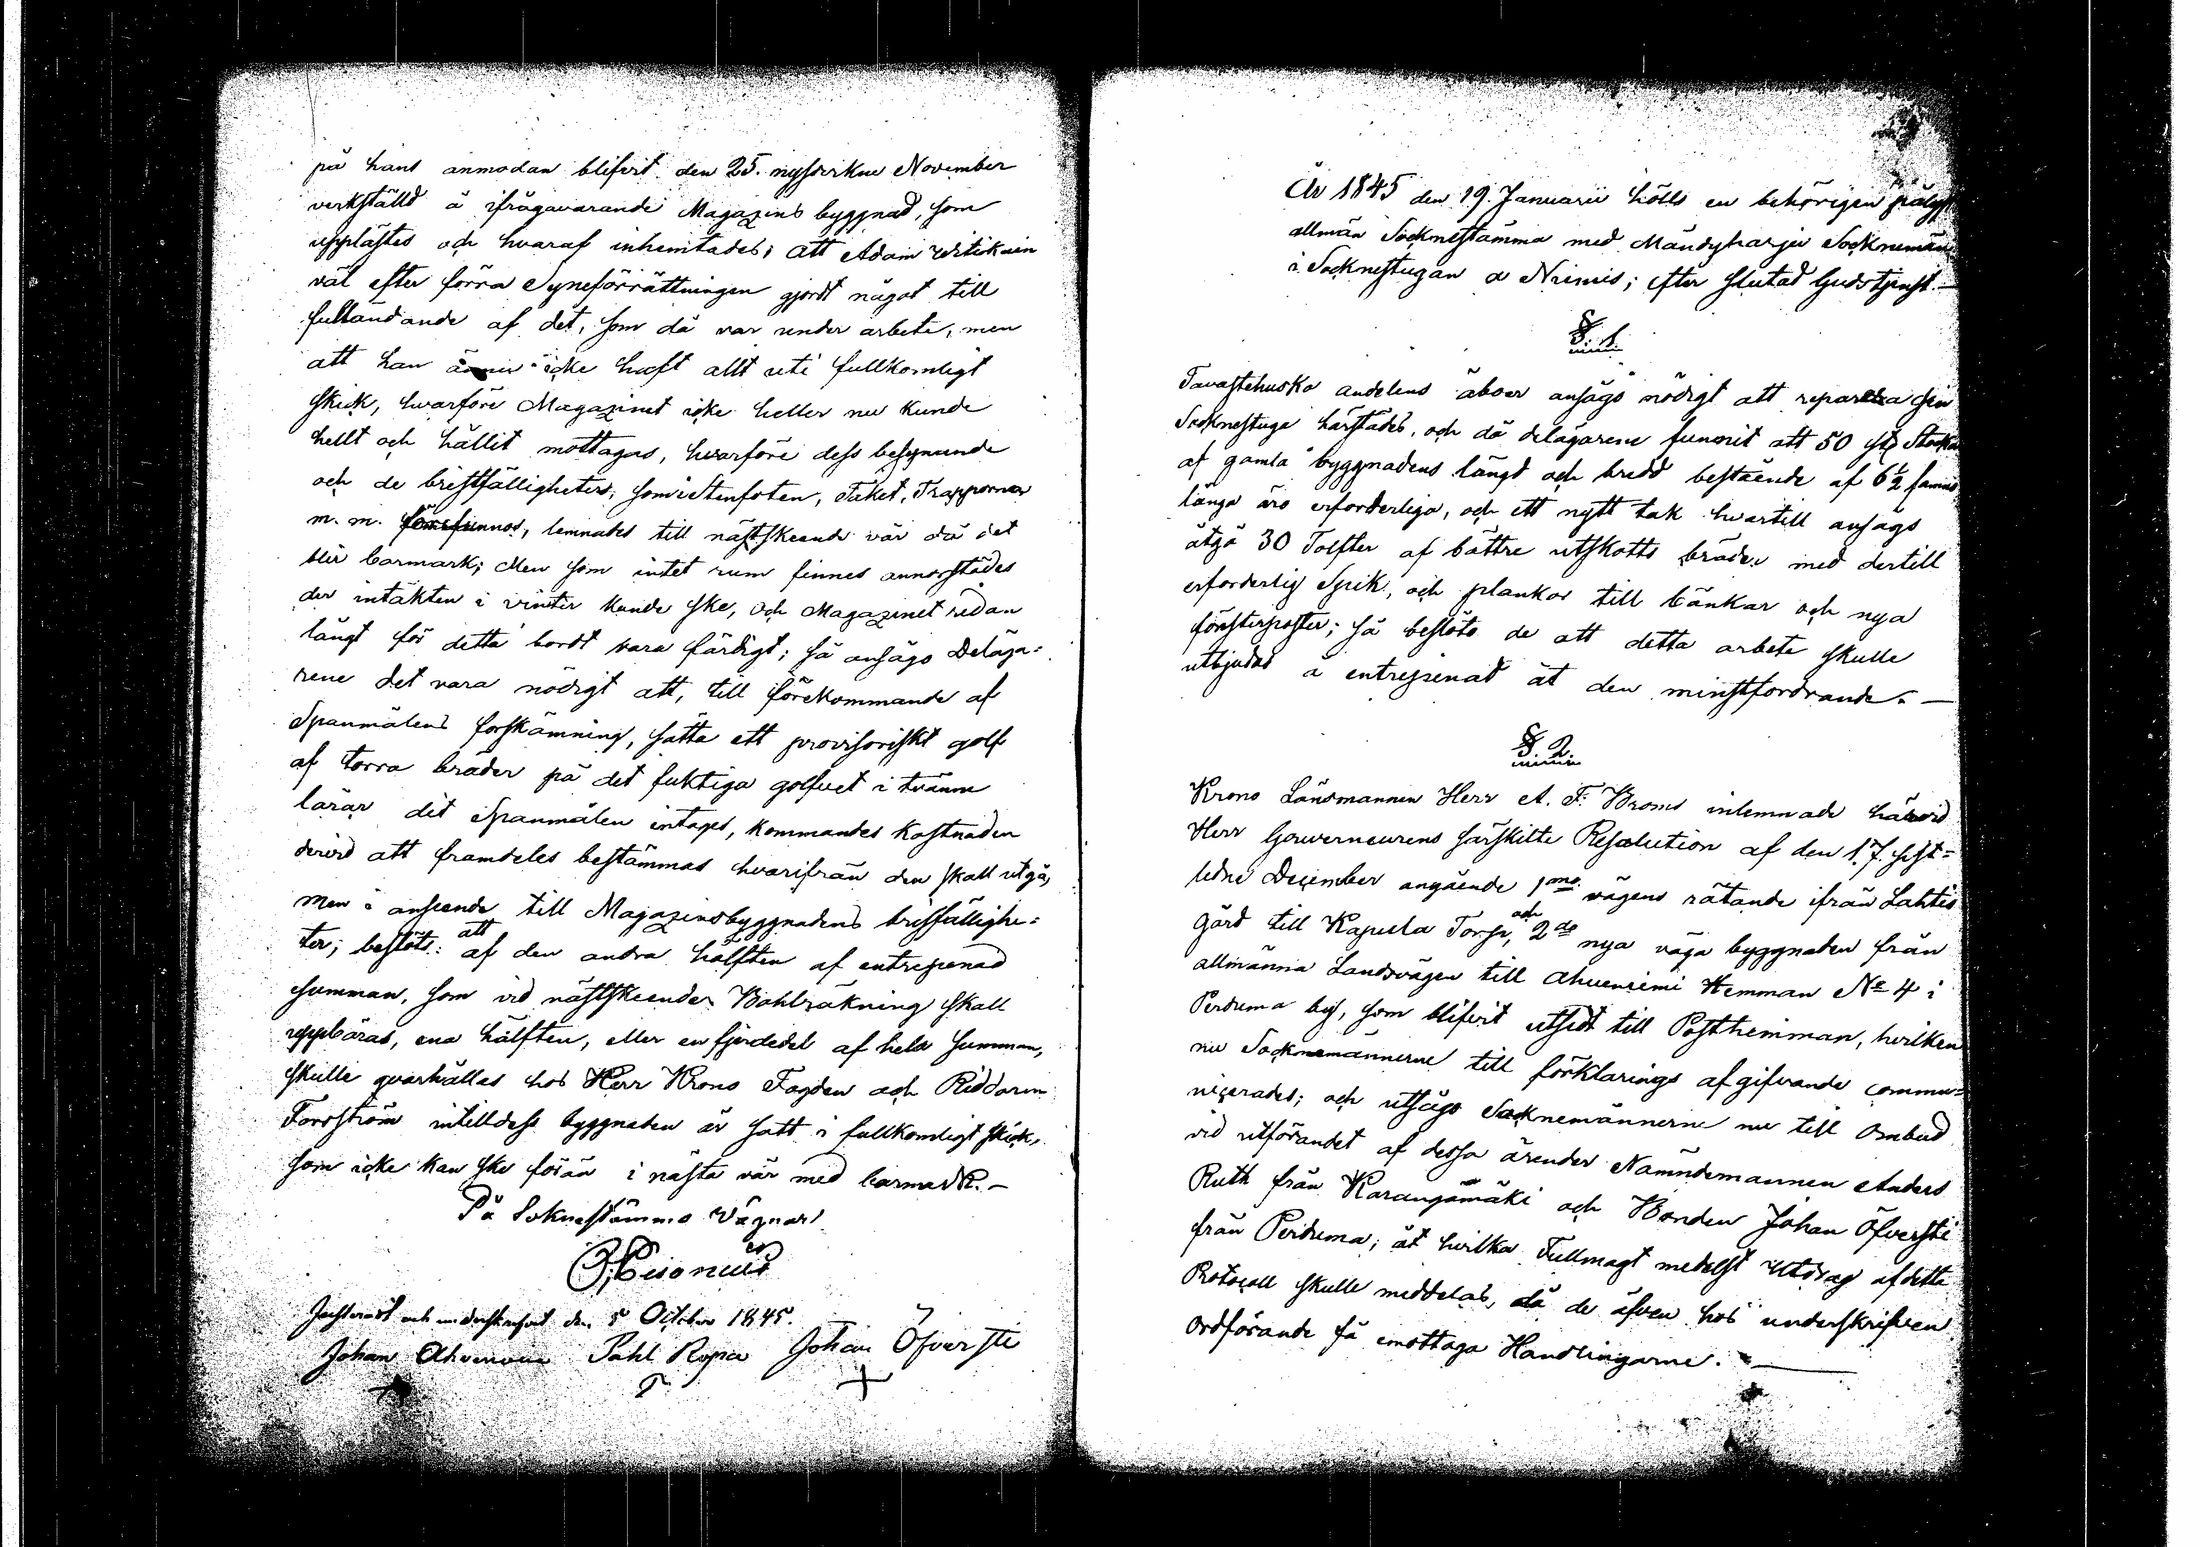 på hans anmodan blifvit den 25. nyssvikne November
verkställd å ifrågavarande Magazins byggnad, som
upplästes och hvaraf inhemtades; att Adam
väl efter förra Syneförrättningen gjordt något till
fulländande af det, som då var under arbete, men
att han ännu icke haft allt uti fullkomligt
skick, hvarföre Magazinet icke heller nu kunde
hellt och hållit mottagas, hvarföre dess besynande
och de bristfälligheter, som i Stenfoten, Taket, Trapporna
m. m. förefunnos, lemnades till nästskeende vår då det
blir barmark; Men som intet rum finnes annorstädes
der intäkten i vinter kunde ske, och Magazinet redan
långt för detta bordt vara färdigt; så ansågo Deläga=
rene det vara nödigt att, till förekommande af
Spanmålens forskämning, sätta ett provisoriskt golf
af torra bräder på det fuktiga golfvet i tvänne
lårar dit Spanmålen intages, kommandes kostnaden
dervid att framdeles bestämmas hvarifrån den skall utgå,
men i anseende till Magazinsbyggnadens bristfällighe=
ter; beslöts: att af den andra hälften af entreprenad
summan, som vid nästskeende Bohlräkning skall
uppbäras, ena hälften, eller en fjerdedel af hela summan,
skulle qvarhållas hos Herr Krono Fogden och Riddaren
Forsström intilldess byggnaden är satt i fullkomligt skick,
som icke kan ske förän i nästa vår med barmark.—
På Soknestämmo Vägnar
Justerat och underskrifvit den 5 October 1845.
Johan Ahvenainen Pahl Ropa Johan Öfverste
År 1845 den 19. Januarii hölls en behörigen pålyst
allmän Socknestämma med Mändyharju Socknemän
i Socknestugan å Niemis; efter slutad Gudstjenst.—
§. 1.
Tavastehusko andelens åboer ansågo nödigt att reparera sin
Socknestuga härstädes, och då delägarene funnit att 50 st: Stockar
af gamla byggnadens längd och bredd bestående af 6½ famnar
långa äro erforderliga, och ett nytt tak hvartill ansågs
åtgå 30 Tolfter af bättre utskotts bräder med dertill
erforderlig Spik, och plankor till bänkar och nya
fönsterposter; så beslöto de att detta arbete skulle
utbjudas å entreprenad åt den minstfordrande.—
§. 2.
Krono Länsmannen Herr A. F. Broms inlemnade härvid
Herr Gouverneurens särskilte Resolution af den 17. sist=
ledne December angående 1mo vägens rätande ifrån Lahtis
gård till Kapula Torp, och 2do nya väga byggnaden från
allmänna Landsvägen till Ahveniemi Hemman No 4 i
Pertuma by, som blifvit utsedt till Posthemman, hvilken
nu Socknemännerne till förklarings afgifvande commu=
nicerades; och utsågo Socknemännerne nu till Ombud
vid utförandet af dessa ärender Nämndemannen Anders
Ruth från Karangämäki och Bonden Johan Öfverste
från Pertuma; åt hvilka Fullmagt medelst Utdrag af detta
Protocoll skulle meddelas, då de äfven hos underskrifven
Ordförande få emottaga Handlingarne.—